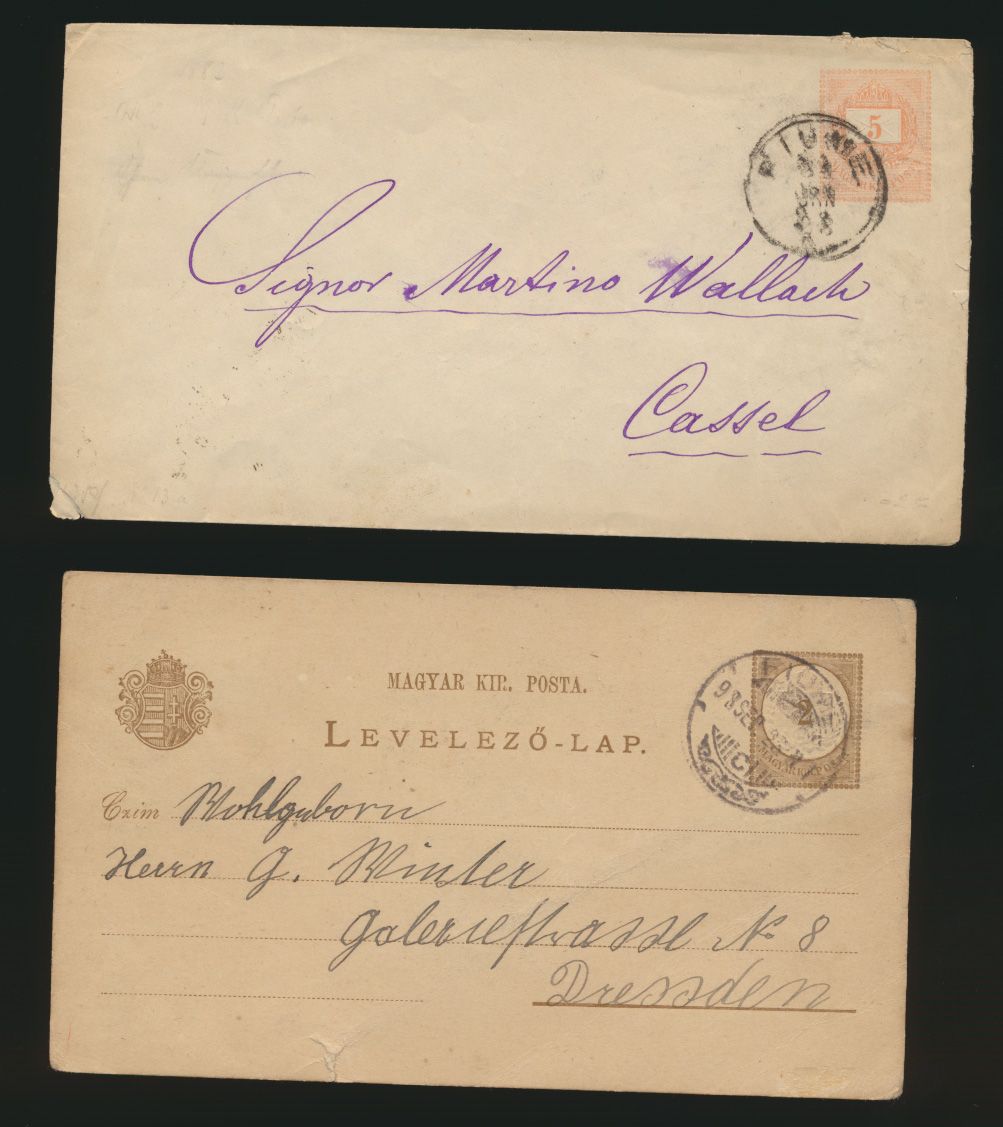 5
FIUME
JAN
Signor Martino Wallach
Cassel
MAGYAR KIR. POSTA.
LEVELEZŐ-LAP.
2
MAGYAR KIR. POSTA
Czim Wohlgeborn
Herrn G. Winter
Galeriestrasse No 8
Dresden